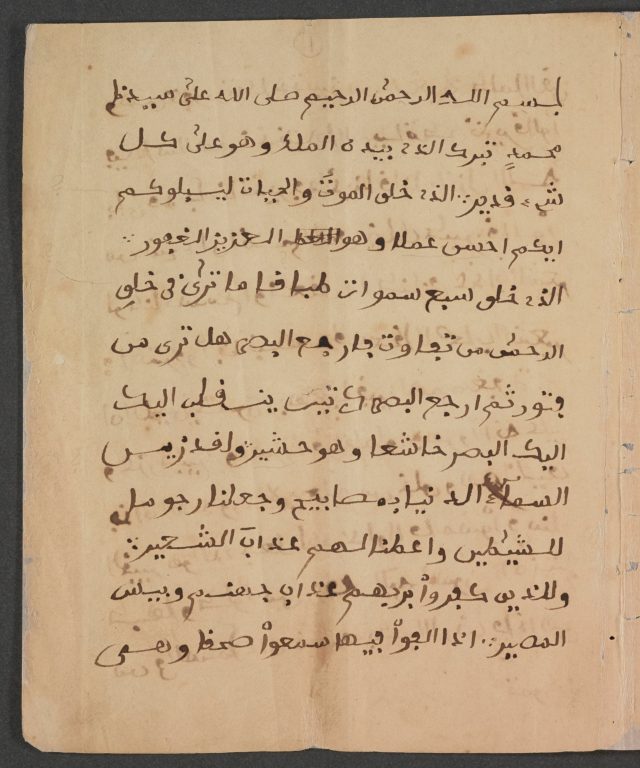 بسم الله الرحمن الرحيم صلى الله على سيدنا
محمد تبرك الذي بيده الملك وهو على كل
شيء قدير الذي خلق الموت والحيات ليبلوكم
ايكم احسن عملا وهو العزيز الغفور
الذي خلق سبع سموات طباقا ما ترى في خلق
الرحمن من تفاوت فارجع البصر هل ترى من
فتور ثم ارجع البصر ينقلب اليك
اليك البصر خاشعا وهو حشير ولقد زين
السماء الدنيا بمصابيح وجعلنا رجوما
للشيطين واعطنا لهم عذاب الشعير
وللذين كفروا بربهم عذاب جهنم وبيس
المصير اذا القوا فيها سمعوا